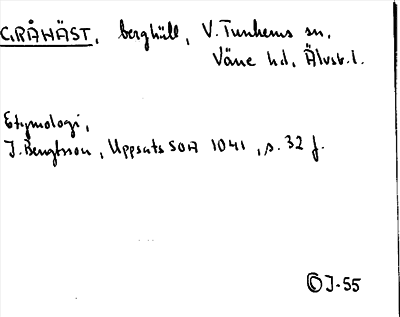 GRÅHÄST, berghäll, V. Tunhems sn,
Väne hd, Älvsb. l.
Etymologi,
J. Bengtsson, Uppsats SOA 1041, s. 32 f.
© J-55